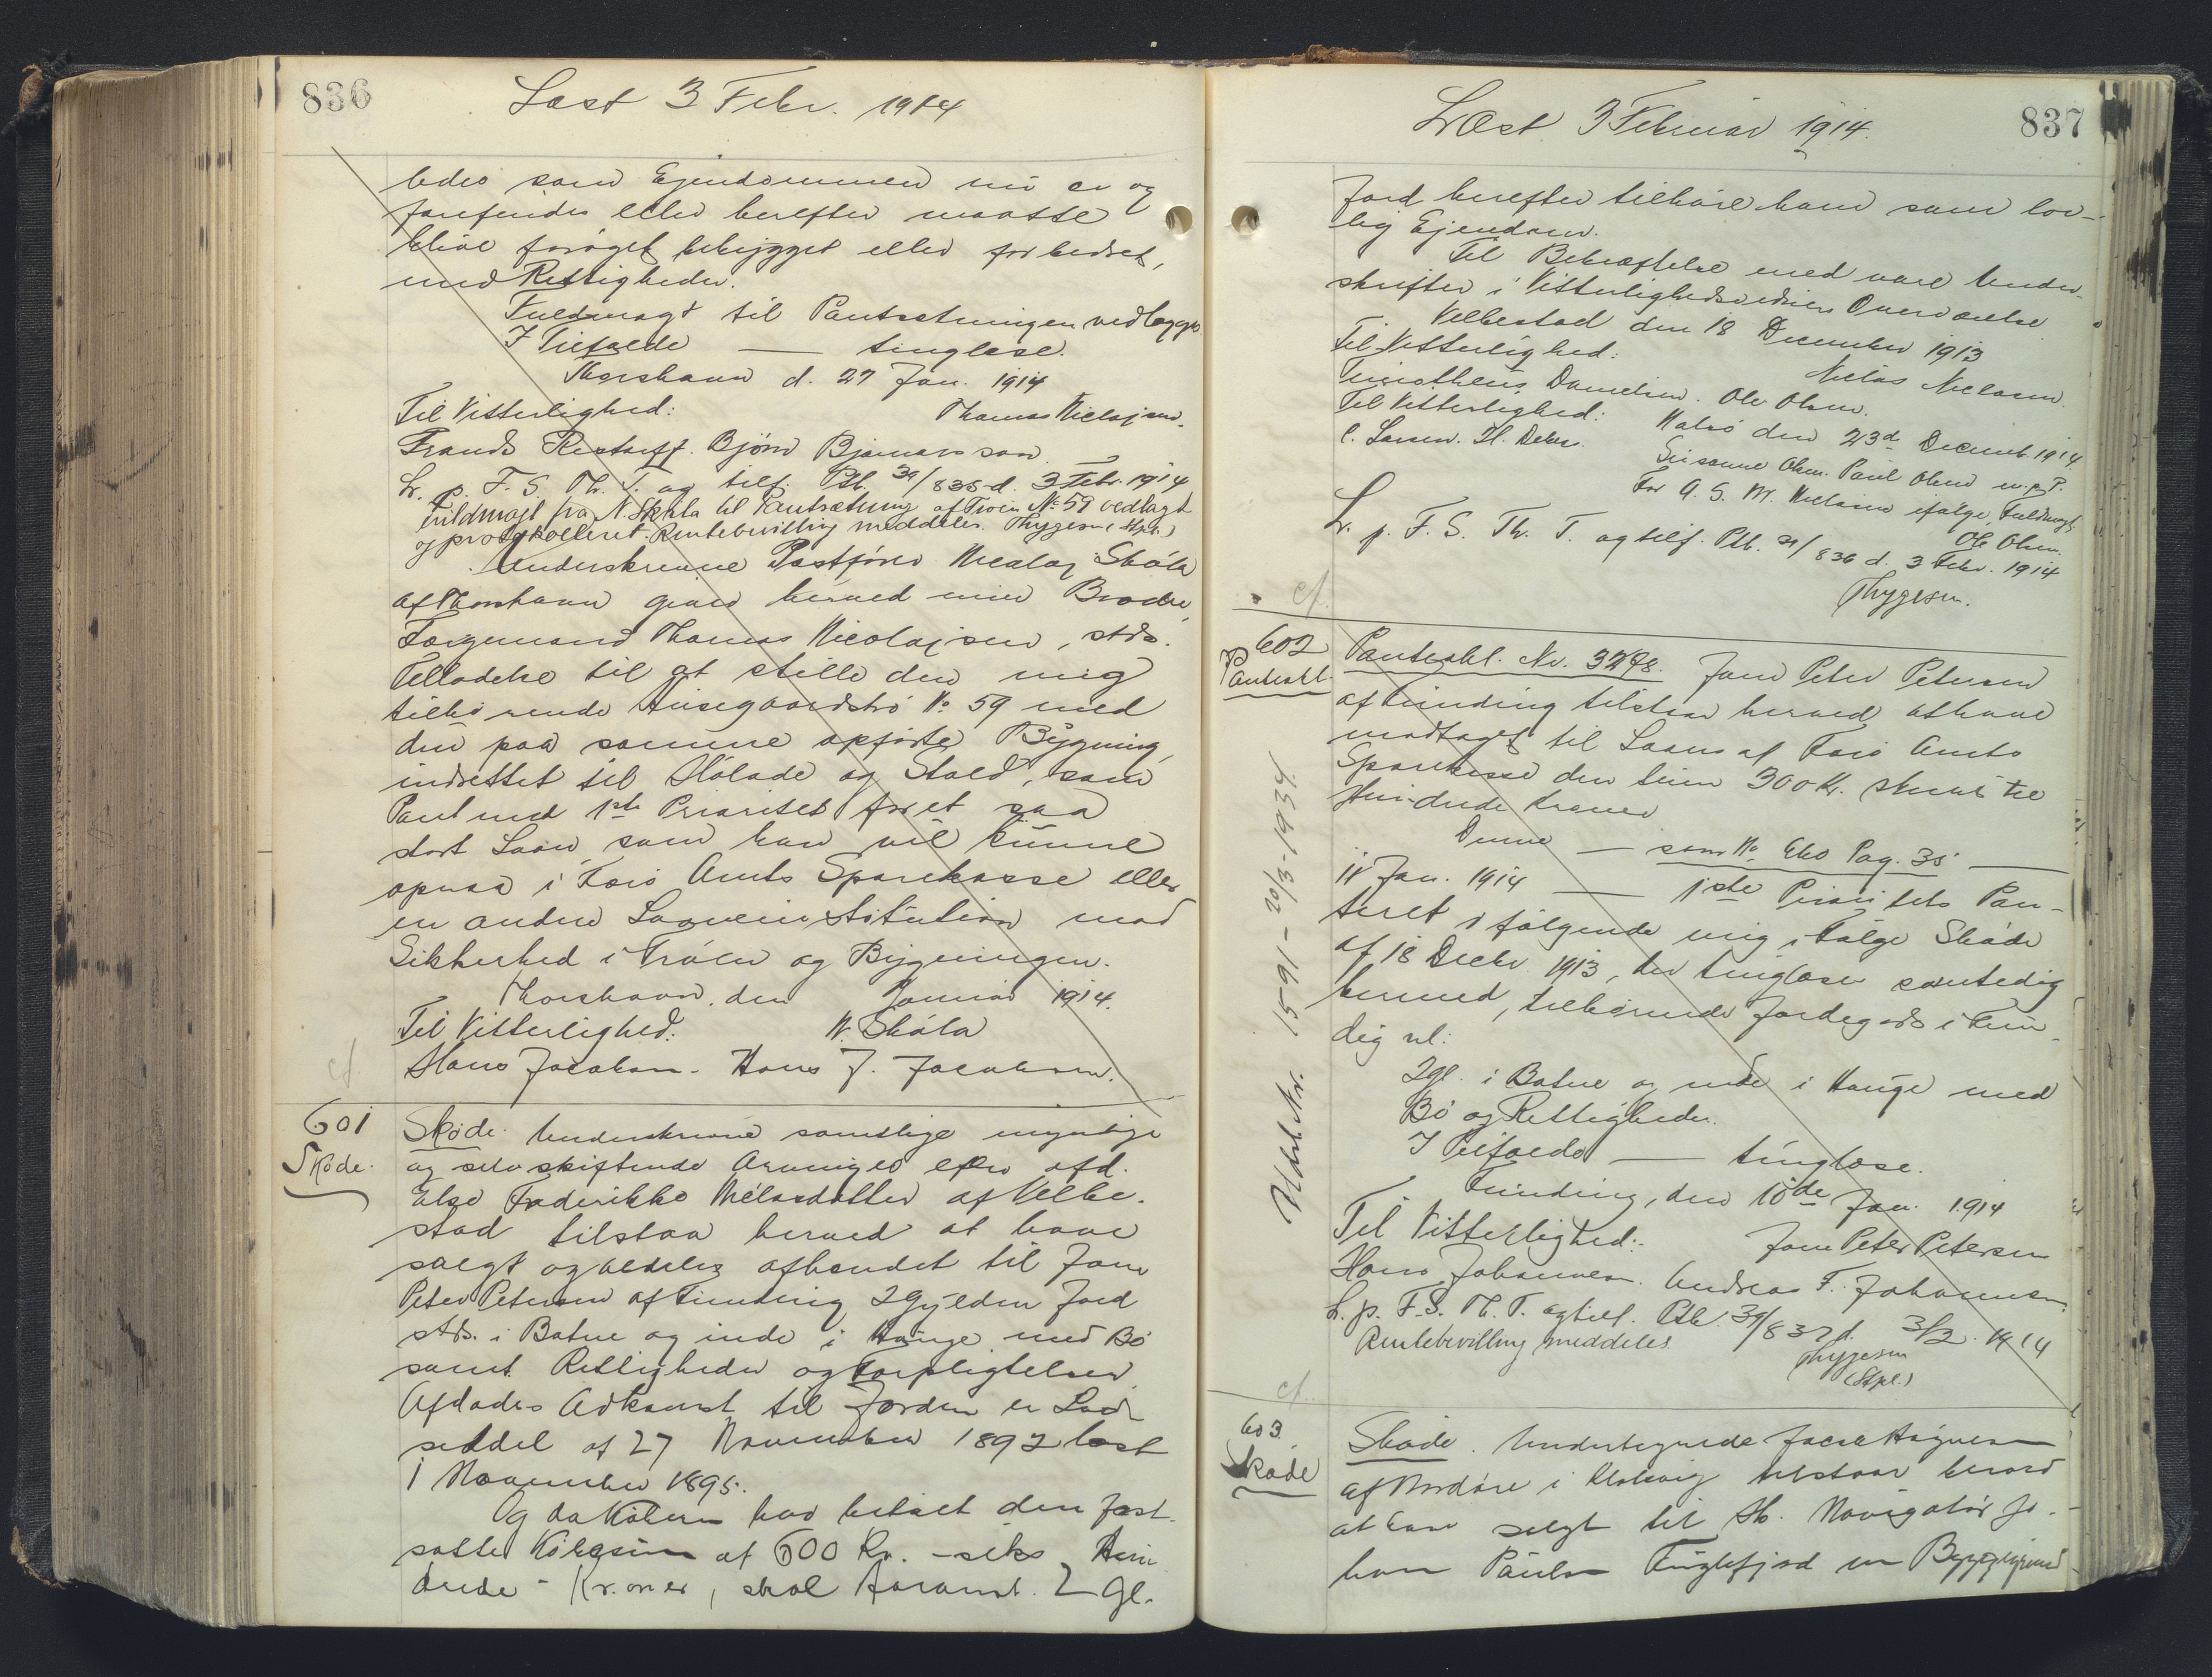 836
Læst 3 Febr. 1914
ledes som Ejendommen nu er og
forefindes eller herefter maatte
blive forøget bebygget eller forbedret,
med Rettigheder.
Fuldmagt til Pantsetningen vedlægges.
I Tilfælde — tinglæse.
Thorshavn d. 27 Jan. 1914
Til Vitterlighed: Thomas Nicolajsen.
Frands Restorff. Bjørn Bjarnarsson
L. p. F. S. Th. T. og tilf. Ptb. 30/835 d. 3 Febr. 1914
Fuldmagt fra N. Skåla til Pantsætning af Troen No 59 vedlagt
og protokolleret. Rentebevilling meddeles. Thygesen (Stpl.)
Underskrevne Postfører Nicolaj Skåla
af Thorshavn giver herved min Broder,
Færgemand Thomas Nicolajsen, stds.
Tilladelse til at stille den mig
tilhørende Husegaardstrø No 59 med
den paa samme opførte Bygning,
indrettet til Hølade og Stald, som
Pant med 1ste Prioritet for et saa
stort Laan som han vil kunne
opnaa i Færø Amts Sparekasse eller
en anden Laaneinstitution mod
Sikkerhed i Trøen og Bygningen.
Thorshavn, den Januar 1914.
Til Vitterlighed: N. Skåla
Hans Jacobsen. Hans J. Jacobsen.
cf.
601
Skøde.
Skøde. Underskrevne samtlige myndige
og selvskiftende Arvinger efter afd.
Else Frederikke Nielasdatter af Velbe-
stad tilstaa herved at have
solgt og aldeles afhændet til Jens
Peter Petersen af Funding 2 Gylden Jord
stds. i Batne og inde i Hauge med Bø
samt Rettigheder og Forpligtelser.
Afdødes Adkomst til Jorden er Lod-
seddel af 27 November 1892 læst
1 November 1895.
Og da Køberen har betalt den fast-
satte Købesum af 600 Kr. - seks Hun
drede - Kroner, skal fornævnt. 2 Gl.
837
Læst 3 Februar 1914.
Jord herefter tilhøre ham som lov-
lig Ejendom.
Til Bekræftelse med vore Under-
skrifter i Vitterlighedsvidners Overværelse
Velbestad den 18 December 1913
Til Vitterlighed: Nielas Nielsen.
Timotheus Danielsen. Ole Olsen.
Til Vitterlighed: Nolsø den 23d Decemb. 1914.
C. Larsen. H. Debes. Susanne Olsen. Paul Olsen m. p. P.
For A. S. M. Nielsen ifølge Fuldmagt,
Ole Olsen.
L. p. F. S. Th. T. og tilf. Ptb. 30/836 d. 3 Febr. 1914
Thygesen.
cf.
602
Panteobl.
Panteobl. No. 3298. Jens Peter Petersen
af Funding tilstaar herved at have
modtaget til Laans af Færø Amts
Sparekasse den Sum 300 Kr. skriver tre
Hundrede Kroner
Denne — som No 260 Pag. 35 —
11 Jan. 1914 — 1ste Prioritets Pan-
teret i følgende mig i Følge Skøde
af 18 Decbr. 1913, der tinglæses samtidig
hermed, tilhørende Jordegods i Fun-
ding nl:
2 Gl. i Batne og inde i Hauge med
Bø og Rettigheder.
I Tilfælde — tinglæse.
Funding, den 10de Jan. 1914
Til Vitterlighed: Jens Peter Petersen
Hans Johannesen. Andreas F. Johannesen.
L. p. F. S. Th. T. og tilf. Ptb. 30/837 d. 3/2. 1914
Rentebevilling meddeles. Thygesen
(Stpl.)
Udsl. Nr. 1591 - 20/3 - 1934.
cf.
603.
Skøde
Skøde. Undertegnede Jacob Høgnesen
af Nordøre i Klaksvig tilstaar herved
at have solgt til Hr. Navigatør Jo-
han Paulsen Fuglefjord en Byggegrund